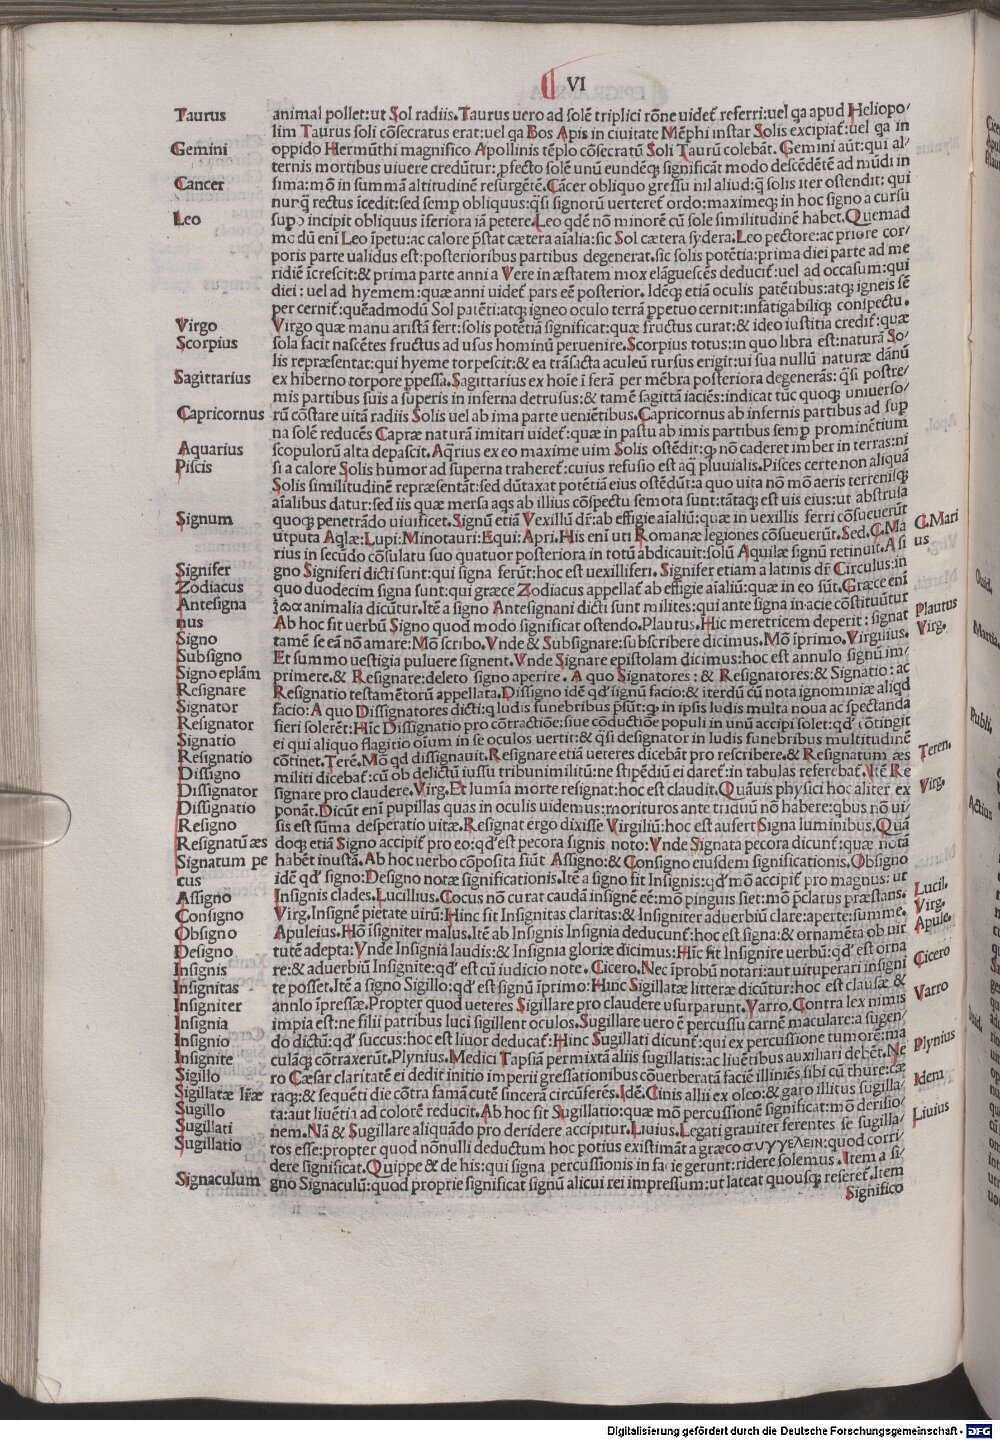 VI
Taurus
Gemini
Cancer
Leo
Virgo
Scorpius
Sagittarius
Capricornus
Aquarius
Piscis
Signum
Signifer
Zodiacus
Antesigna
nus
Signo
Subsigno
Signo eplãm
Resignare
Signator
Resignator
Signatio
Resignatio
Dissigno
Dissignator
Dissignatio
Resigno
Resignatũ æs
Signatum pe
cus
Assigno
Consigno
Obsigno
Designo
Insignis
Insignitas
Insigniter
Insignia
Insignio
Insignite
Sigillo
Sigillatæ lr̃æ
Sugillo
Sugillati
Sugillatio
Signaculum
animal pollet: ut Sol radiis. Taurus uero ad solẽ triplici rõne uidet̃ referri: uel qa apud Heliopo/
lim Taurus soli cõsecratus erat: uel qa Bos Apis in ciuitate Mẽphi instar Solis excipiat̃: uel qa in
oppido Hermũthi magnifico Apollinis tẽplo cõsecratũ Soli Taurũ colebãt. Gemini aũt: qui al/
ternis mortibus uiuere credũtur: ꝓfecto solẽ unũ eundẽqȝ significãt modo descẽdẽtẽ ad mũdi in
fima: mõ in summã altitudinẽ resurgẽtẽ. Cãcer obliquo gressu nil aliud: q̃ solis iter ostendit: qui
nunrqȝ rectus ĩcedit: sed semp obliquus: q̃si signorũ uerteret̃ ordo: maximeqȝ in hoc signo a cursu
supo incipit obliquus ĩferiora iã petere. Leo qdẽ nõ minorẽ cũ sole similitudinẽ habet. Quemad
modũ enĩ Leo ĩpetu: ac calore p̃stat cætera aĩalia: sic Sol cætera sydera. Leo pectore: ac priore cor/
poris parte ualidus est: posterioribus partibus degenerat. sic solis potẽtia: prima diei parte ad me
ridiẽ ĩcrescit: & prima parte anni a Vere in æstatem mox elãguescẽs deducit̃: uel ad occasum: qui
diei: uel ad hyemem: quæ anni uidet̃ pars eẽ posterior. Idẽqȝ etiã oculis patẽtibus: atqȝ igneis sẽ
per cernit̃: quẽadmodũ Sol patẽti: atqȝ igneo oculo terrã ꝑpetuo cernit: infatigabiliqȝ conĩpectu.
Virgo quæ manu aristã fert: solis potẽtiã significat: quæ fructus curat: & ideo iustitia credit̃: quæ
sola facit nascẽtes fructus ad usus hominũ peruenire. Scorpius totus: in quo libra est: naturã So/
lis repræsentat: qui hyeme torpescit: & ea trãsacta aculeũ rursus erigit: ui sua nullũ naturæ dãnũ
ex hiberno torpore ꝑpessa. Sagittarius ex hoie ĩ ferã per mẽbra posteriora degenerãs: q̃si postre/
mis partibus suis a superis in inferna detrusus: & tamẽ sagittã iaciẽs: indicat tũc quoqȝ uniuerso/
rũ cõstare uitã radiis Solis uel ab ima parte ueniẽtibus. Capricornus ab infernis partibus ad sup
na solẽ reducẽs Capræ naturã imitari uidet̃: quæ in pastu ab imis partibus semp prominẽtium
scopulorũ alta depascit̃. Aq̃rius ex eo maxime uim Solis ostẽdit: ꝙ nõ caderet imber in terras: ni
si a calore Solis humor ad superna traheret̃: cuius refusio est aq̃ pluuialis. Pisces certe non aliquã
Solis similitudinẽ repræsentãt: sed dũtaxat potẽtiã eius ostẽdũt: a quo uita nõ mõ aeris terrenisqȝ
aĩalibus datur: sed iis quæ mersa aqs ab illius cõspectu semota sunt: tãtaqȝ est uis eius: ut abstrusa
quoqȝ penetrãdo uiuificet. Signũ etiã Vexillũ dr̃: ab effigie aĩaliũ: quæ in uexillis ferri cõsueuerũt
utputa Aqlæ: Lupi: Minotauri: Equi: Apri. His enĩ uti Romanæ legiones cõsueuerũt. Sed. C. Ma
rius in secũdo cõsulatu suo quatuor posteriora in totũ abdicauit: solũ Aquilæ signũ retinuit. A si
gno Signiferi dicti sunt: qui signa ferũt: hoc est uexilliferi. Signifer etiam a latinis dr̃ Circulus: in
quo duodecim signa sunt: qui græce Zodiacus appellat̃ ab effigie aĩaliũ: quæ in eo sũt. Græce enĩ
ζωα animalia dicũtur. Itẽ a signo Antesignani dicti sunt milites: qui ante signa in acie cõstituũtur
Ab hoc fit uerbũ Signo quod modo significat ostendo. Plautus. Hic meretricem deperit: signat
tamẽ se eã nõ amare: Mõ scribo. Vnde & Subsignare: subscribere dicimus. Mõ ĩprimo. Virgilius.
Et summo uestigia puluere signent. Vnde Signare epistolam dicimus: hoc est annulo signũ im/
primere. & Resignare: deleto signo aperire. A quo Signatores: & Resignatores: & Signatio: ac
Resignatio testamẽtorũ appellata. Dissigno idẽ qd̃ signũ facio: & iterdũ cũ nota ignominiæ aliqd
facio: A quo Dissignatores dicti: q ludis funebribus p̃sũt: ꝙ in ipsis ludis multa noua ac spectanda
fieri solerẽt: Hic Dissignatio pro cõtractiõe: siue cõductiõe populi in unũ accipi solet: qd̃ cõtingit
ei qui aliquo flagitio oĩum in se oculos uertit: & q̃si designator in ludis funebribus multitudinẽ
cõtinet. Terẽ. Mõ qd dissignauit. Resignare etiã ueteres dicebãt pro rescribere. & Resignatum æs
militi dicebat̃: cũ ob delictũ iussu tribuni militũ: ne stipẽdiũ ei daret̃: in tabulas referebat̃. Itẽ Re
signare pro claudere. Virg. Et lumĩa morte resignat: hoc est claudit. Quãuis physici hoc aliter ex
ponãt. Dicũt enĩ pupillas quas in oculis uidemus: morituros ante triduũ nõ habere: qbus nõ ui/
sis est sũma desperatio uitæ. Resignat ergo dixisse Virgiliũ: hoc est aufert Signa luminibus. Quã
doqȝ etiã Signo accipit̃ pro eo: qd̃ est pecora signis noto: Vnde Signata pecora dicunt̃: quæ notã
habẽt inustã. Ab hoc uerbo cõposita siũt Assigno: & Consigno eiusdem significationis. Obsigno
idẽ qd̃ signo: Designo notæ significationis. Itẽ a signo fit Insignis: qd̃ mõ accipit̃ pro magnus: ut
Insignis clades. Lucillius. Cocus nõ curat caudã insignẽ eẽ: mõ pinguis siet: mõ p̃clarus præstans.
Virg. Insignẽ pietate uirũ: Hinc fit Insignitas claritas: & Insigniter aduerbiũ clare: aperte: summe.
Apuleius. Hõ ĩsigniter malus. Itẽ ab Insignis Insignia deducunt̃: hoc est signa: & ornamẽta ob uir
tutẽ adepta: Vnde Insignia laudis: & Insignia gloriæ dicimus: Hic fit Insignire uerbũ: qd̃ est orna
re: & aduerbiũ Insignite: qd̃ est cũ iudicio note. Cicero. Nec ĩprobũ notari: aut uituperari insigni
te posset. Itẽ a signo Sigillo: qd̃ est signũ ĩprimo: Hinc Sigillatæ litteræ dicũtur: hoc est clausæ &
annlo ĩpressæ. Propter quod ueteres Sigillare pro claudere usurparunt. Varro. Contra lex nimis
impia est: ne filii patribus luci sigillent oculos. Sugillare uero ẽ percussu carnẽ maculare: a sugen/
do dictũ: qd̃ succus: hoc est liuor deducat̃: Hinc Sugillati dicunt̃: qui ex percussione tumorẽ: ma
culãqȝ cõtraxerũt. Plynius. Medici Tapsiã permixtã aliis sugillatis: ac liuẽtibus auxiliari debẽt. Ne
ro Cæsar claritatẽ ei dedit initio imperii gressationibus cõuerberatã faciẽ illiniẽs sibi cũ thure: cæ
raqȝ: & sequẽti die cõtra famã cutẽ sincerã circũferẽs. Idẽ. Cinis allii ex oleo: & garo illitus sugilla/
ta: aut liuẽtia ad colorẽ reducit. Ab hoc fit Sugillatio: quæ mõ percussionẽ significat: mõ derisio/
nem. Nã & Sugillare aliquãdo pro deridere accipitur. Liuius. Legati grauiter ferentes se sugilla/
tos esse: propter quod nõnulli deductum hoc potius existimãt a græco συγγελειν: quod corri/
dere significat. Quippe & de his: qui signa percussionis in facie gerunt: ridere solemus. Item a si/
gno Signaculũ: quod proprie significat signũ alicui rei impressum: ut lateat quousqȝ referet̃. Item
Significo
C. Mari
us
Plautus
Virg.
Teren.
Virg.
Lucil.
Virg.
Apule.
Cicero
Varro
Plynius
Idem
Liuius
Digitalisierung gefördert durch die Deutsche Forschungsgemeinschaft - DFG